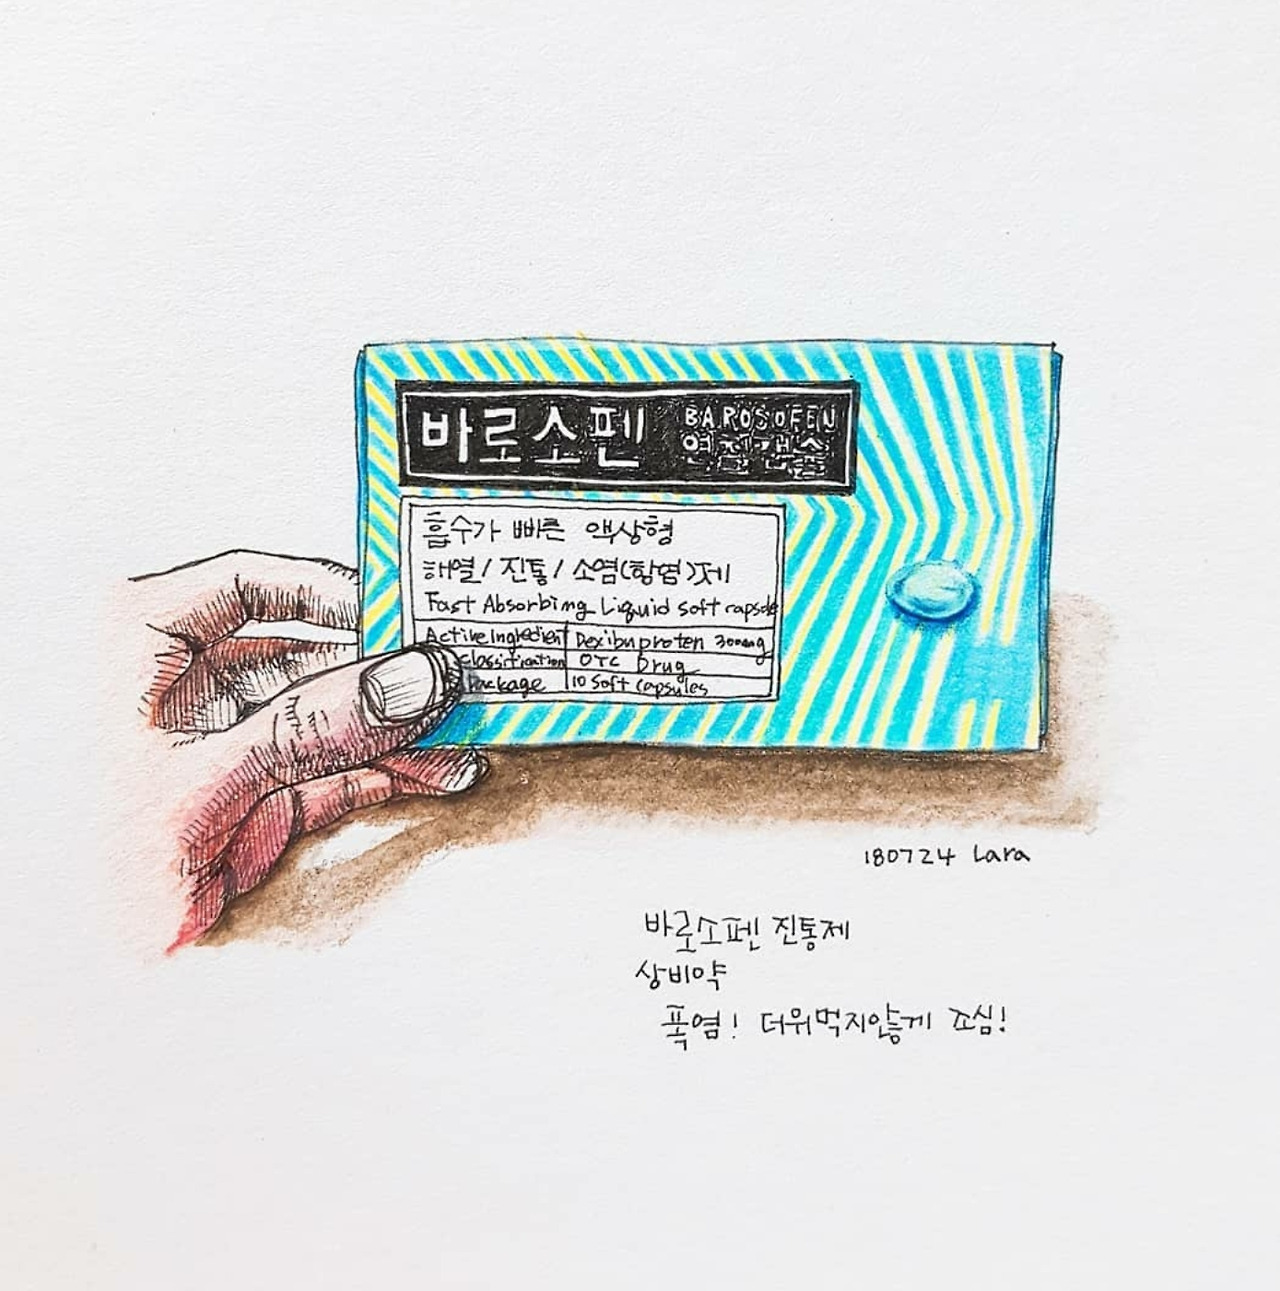 바로소펜 BAROSOFEN
연질캡슐
흡수가 빠른 액상형
해열/진통/소염(항염)제
Fast Absorbing Liquid soft capsule
Active Ingredient Dexibuprofen 300mg
Classification OTC Drug
Package 10 Soft Capsules
180724 Lara
바로소펜 진통제
상비약
폭염! 더위먹지않게 조심!